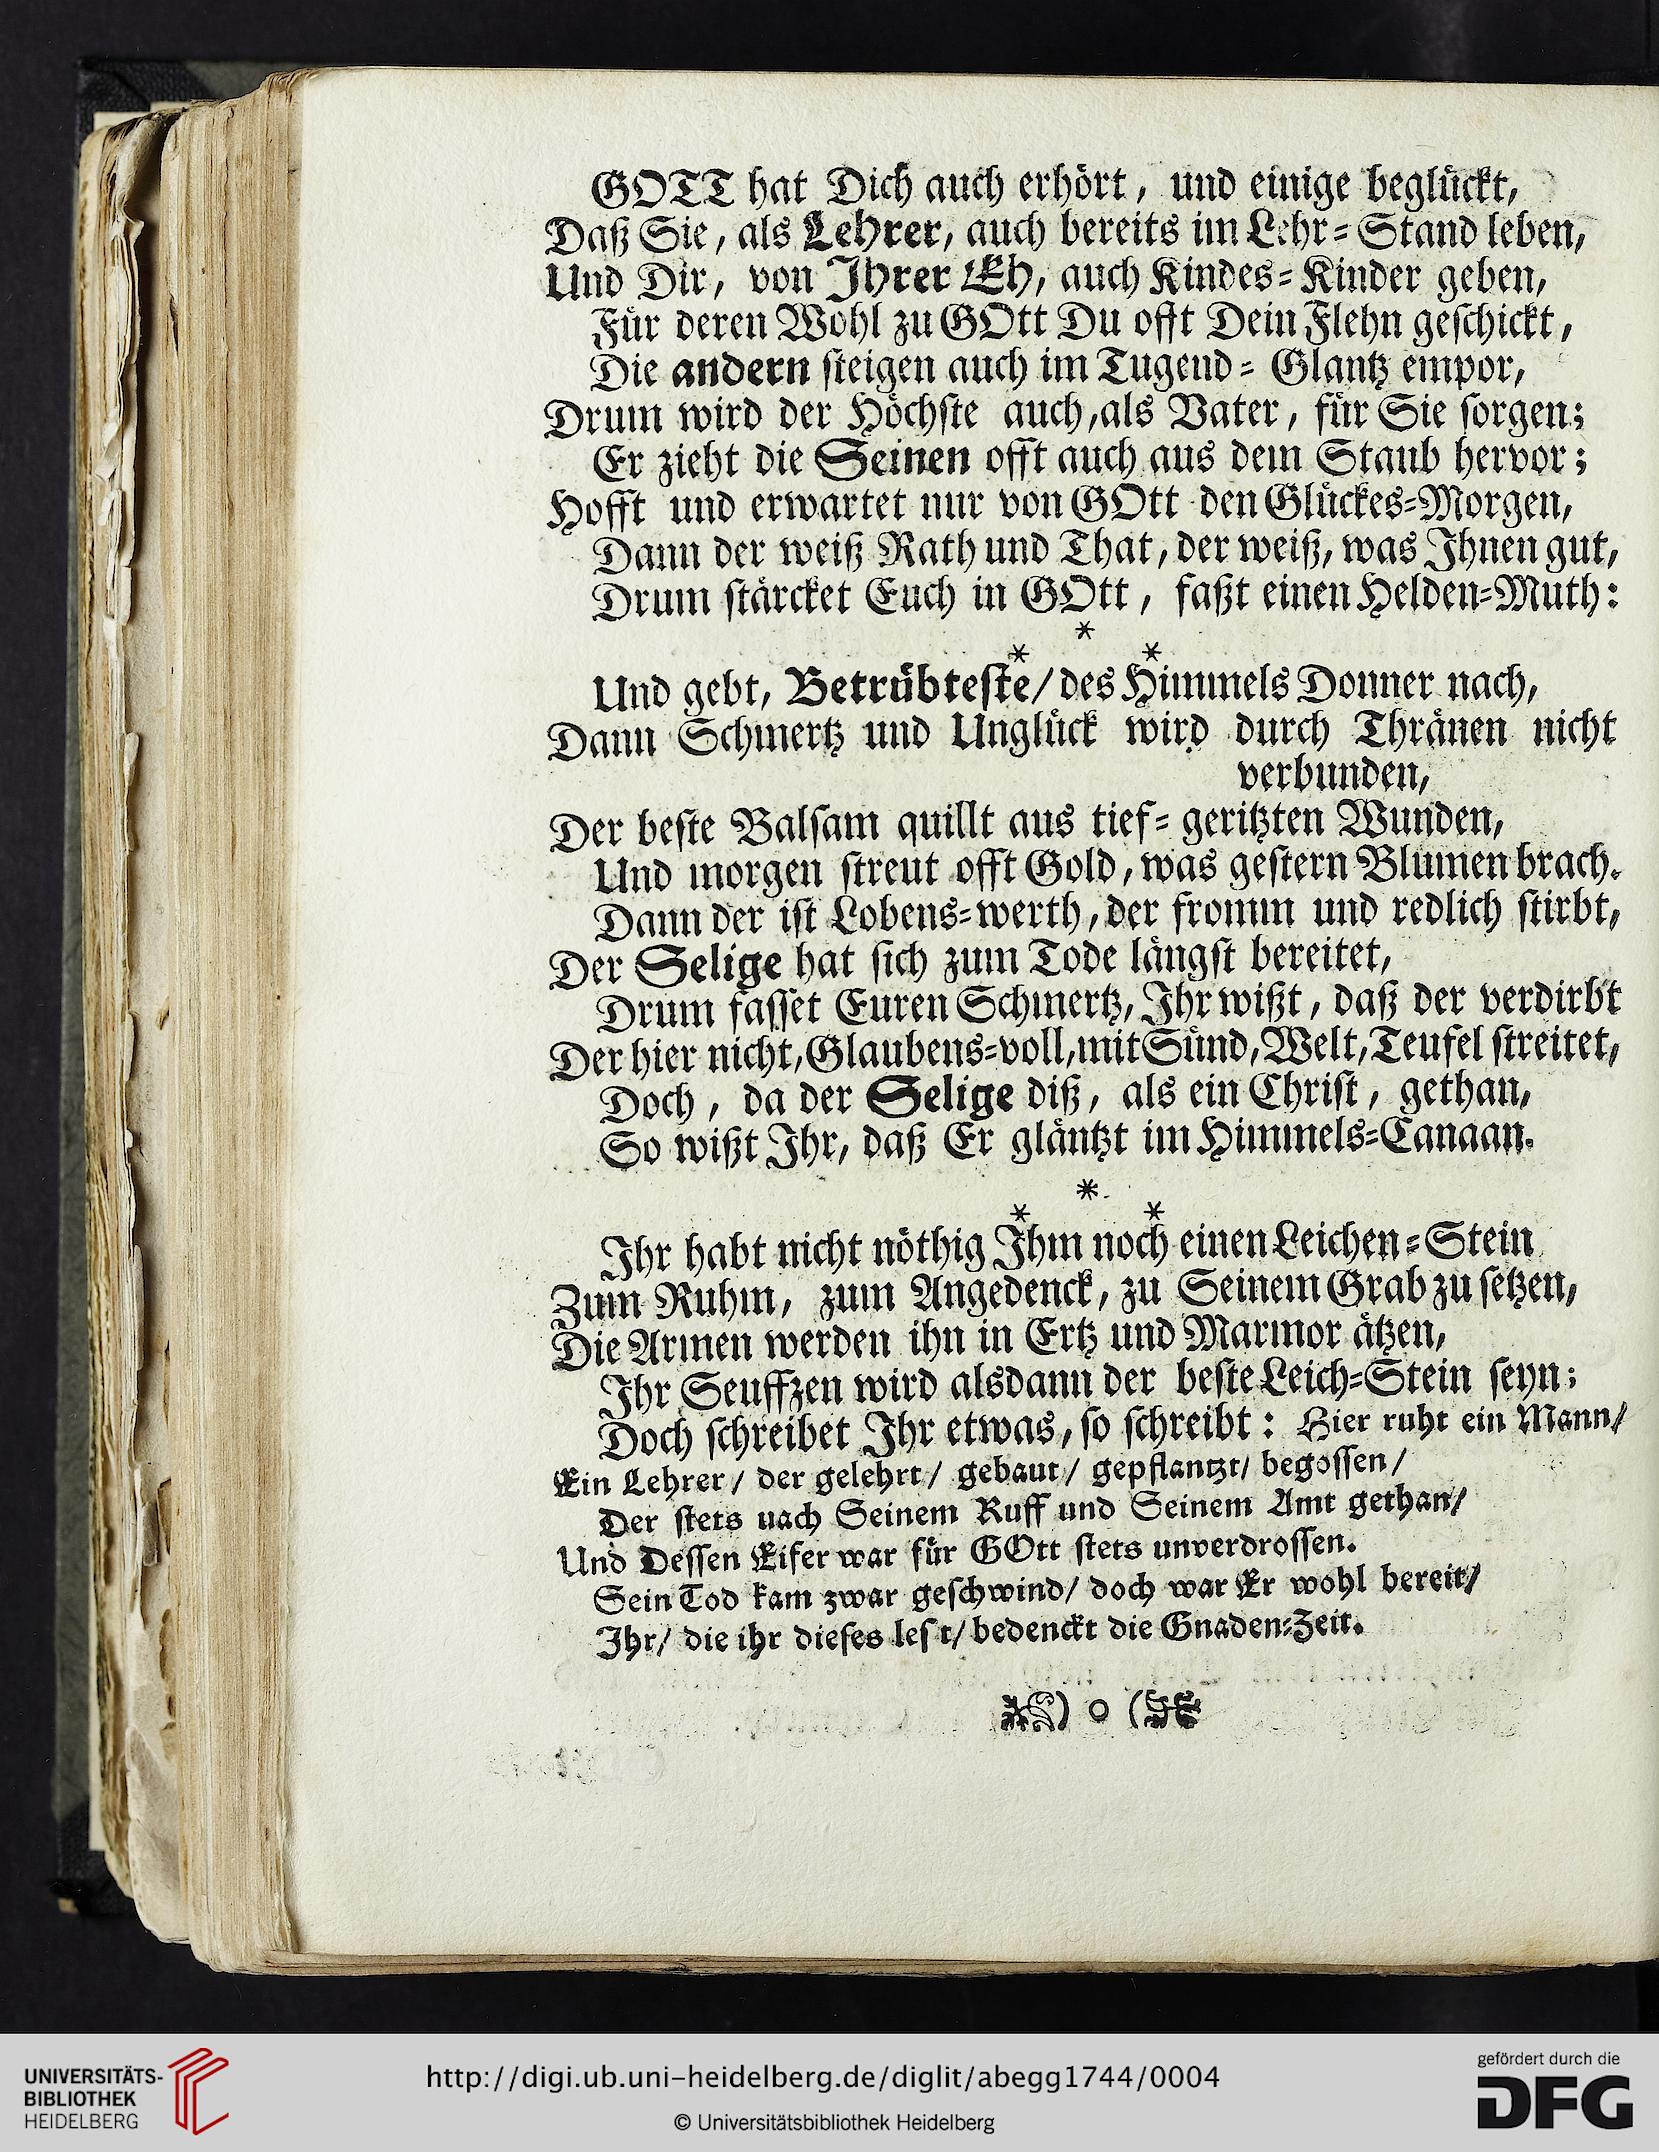 GOTT hat Dich auch erhört, und einige beglückt,
Daß Sie, als Lehrer, auch bereits im Lehr-Stand leben,
Und Dir, von Ihrer Eh, auch Kindes-Kinder geben,
Für deren Wohl zu GOtt Du offt Dein Flehn geschickt,
Die andern steigen auch im Tugend-Glantz empor,
Drum wird der Höchste auch, als Vater, für Sie sorgen;
Er zieht die Seinen offt auch aus dem Staub hervor;
Hofft und erwartet nur von GOtt den Glückes-Morgen,
Dann der weiß Rath und That, der weiß, was Ihnen gut,
Drum stärcket Euch in GOtt, faßt einen Helden-Muth:
*
* *
Und gebt, Betrübteste/ des Himmels Donner nach,
Dann Schmertz und Unglück wird durch Thränen nicht
verbunden,
Der beste Balsam quillt aus tief-geritzten Wunden,
Und morgen streut offt Gold, was gestern Blumen brach.
Dann der ist Lobens-werth, der fromm und redlich stirbt,
Der Selige hat sich zum Tode längst bereitet,
Drum fasset Euren Schmertz, Ihr wißt, daß der verdirbt
Der hier nicht, Glaubens-voll, mit Sünd, Welt, Teufel streitet,
Doch, da der Selige diß, als ein Christ, gethan,
So wißt Ihr, daß Er gläntzt im Himmels-Canaan.
*
* *
Ihr habt nicht nöthig Ihm noch einen Leichen-Stein
Zum Ruhm, zum Angedenck, zu Seinem Grab zu setzen,
Die Armen werden ihn in Ertz und Marmor ätzen,
Ihr Seuffzen wird alsdann der beste Leich-Stein seyn;
Doch schreibet Ihr etwas, so schreibt: Hier ruht ein Mann/
Ein Lehrer/ der gelehrt/ gebaut/ gepflantzt/ begossen/
Der stets uach Seinem Ruff und Seinem Amt gethan/
Und Dessen Eifer war für GOtt stets unverdrossen.
Sein Tod kam zwar geschwind/ doch war Er wohl bereit/
Ihr/ die ihr dieses lest/ bedenckt die Gnaden-Zeit.
) o (
UNIVERSITÄTS-
BIBLIOTHEK
HEIDELBERG
http://digi.ub.uni-heidelberg.de/diglit/abegg1744/0004
© Universitätsbibliothek Heidelberg
gefördert durch die
DFG